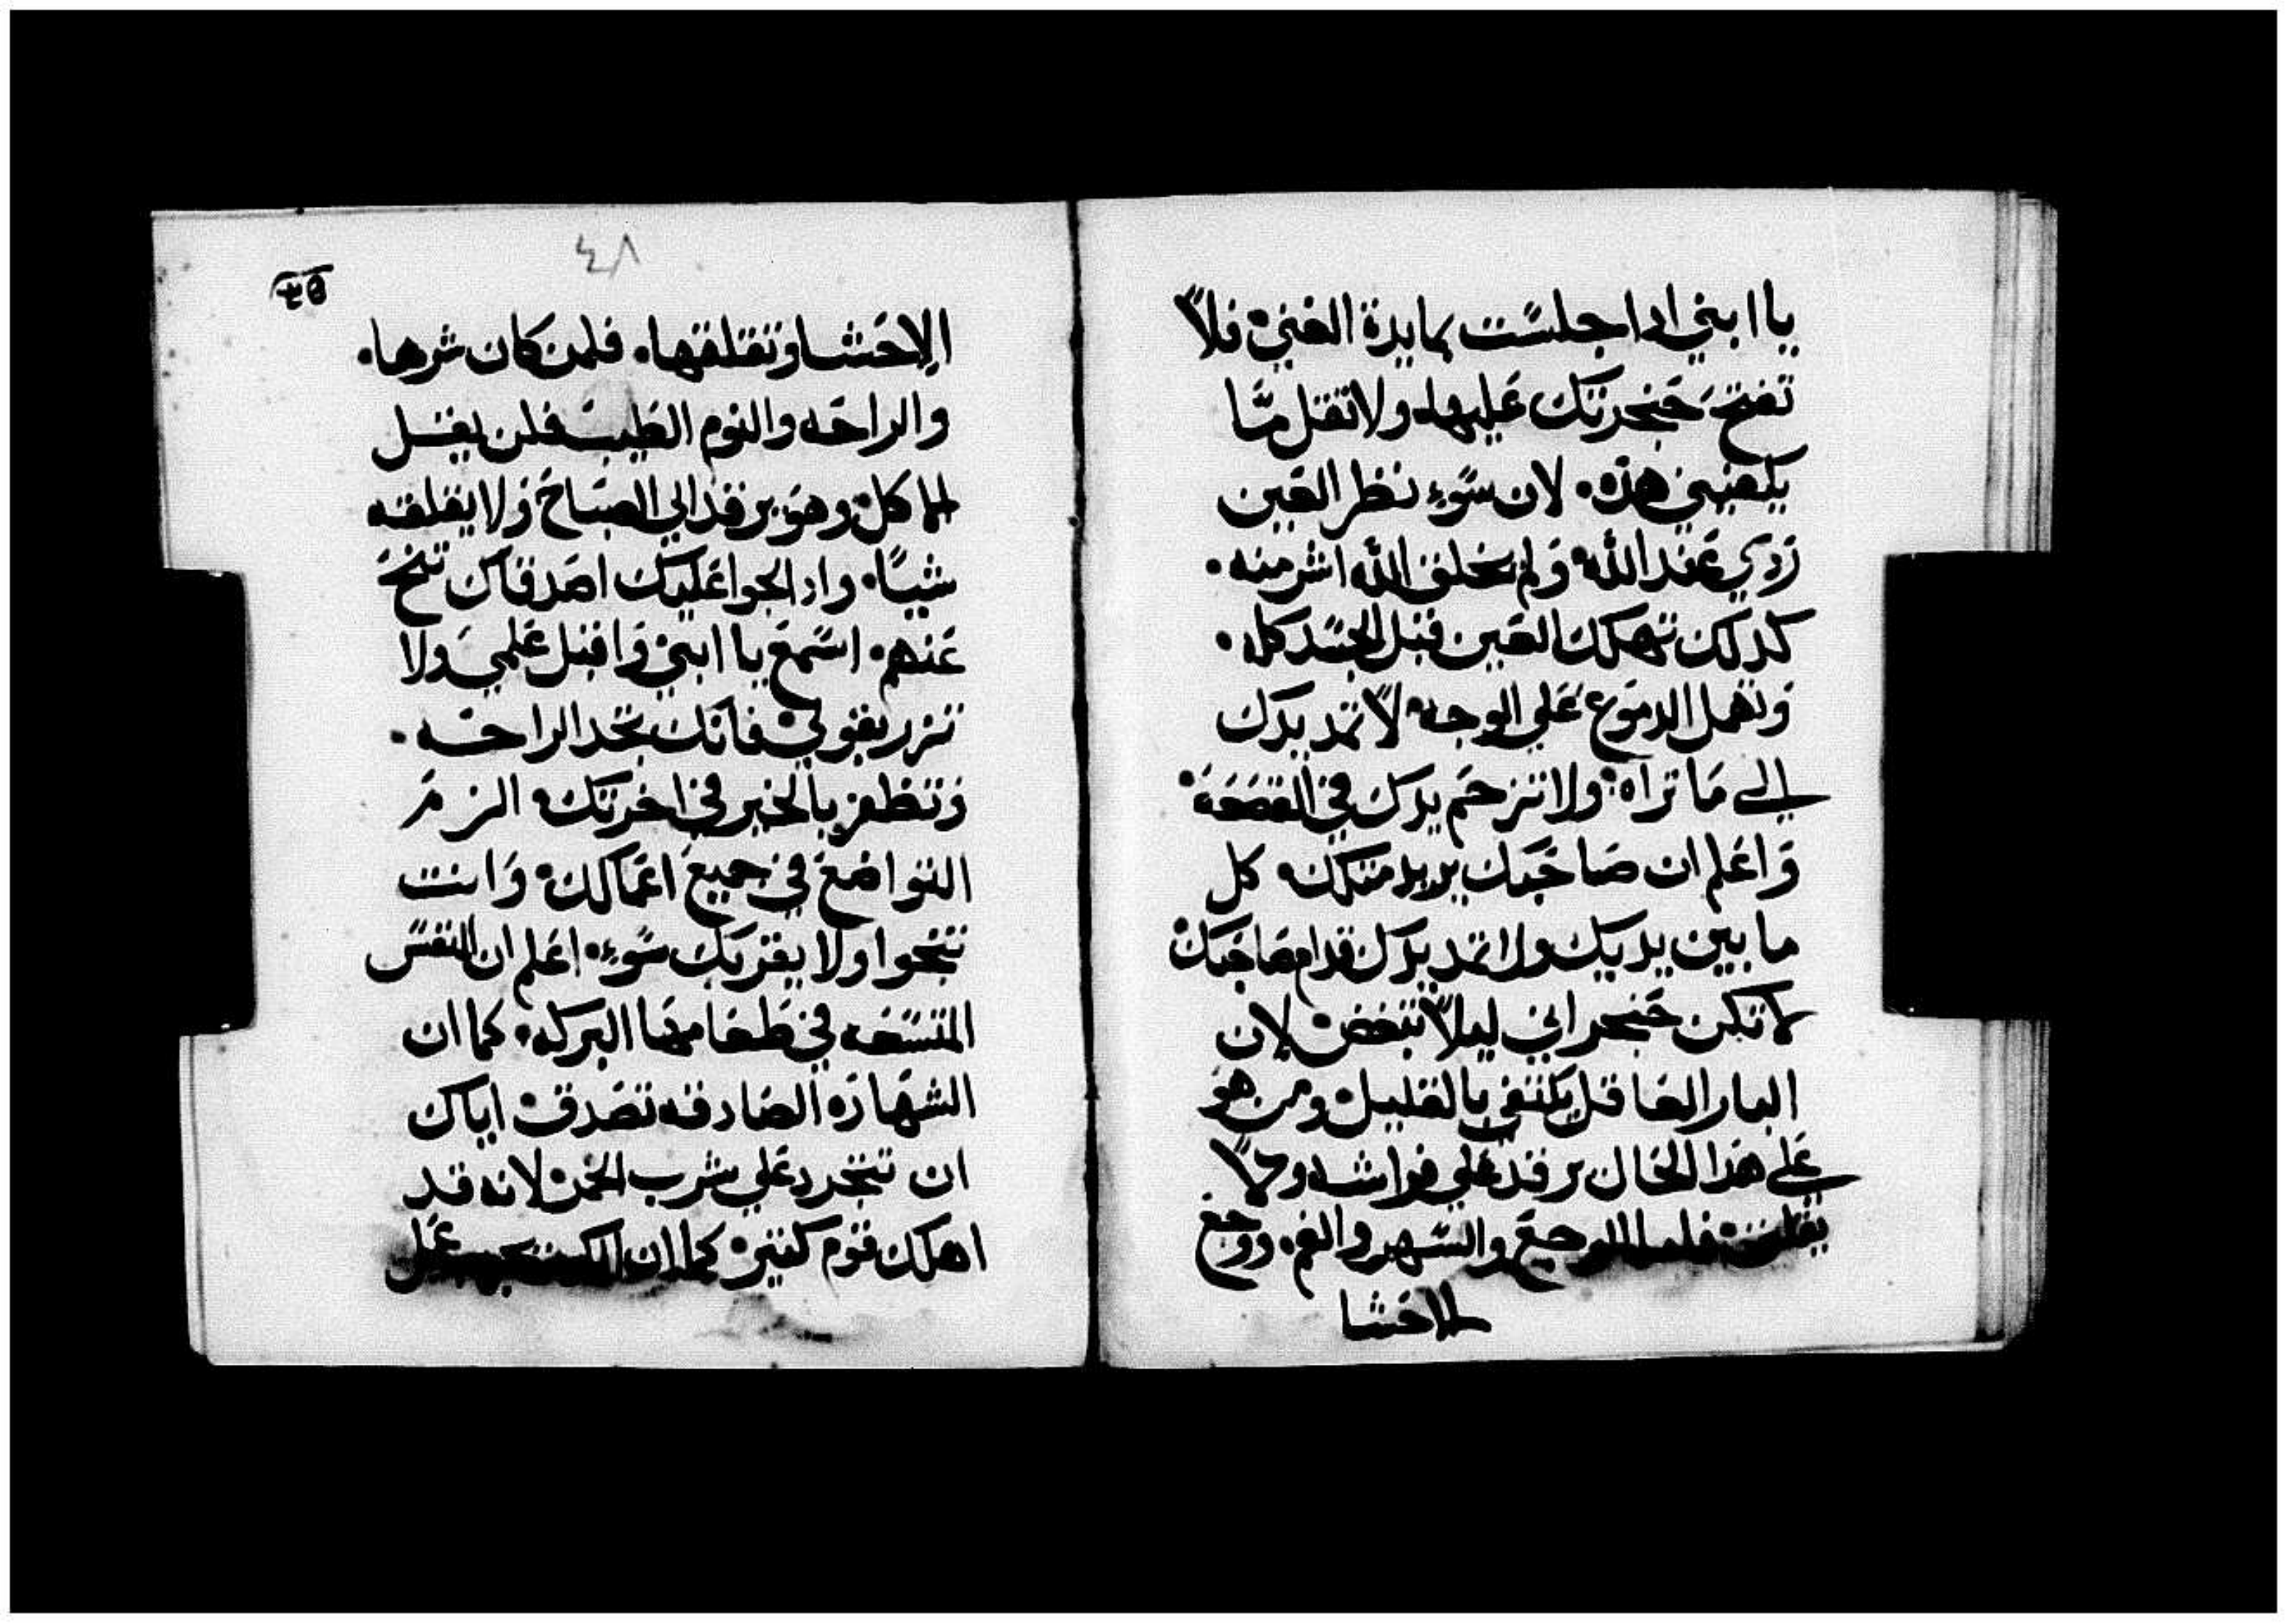 يا ابني ادا جلست بمايدة الغني فلا
تفتح حنجرتك عليها ولا تقل ما
يكفيني هذه. لان سوء نظر العين
ردي عند الله ولم يخلق الله اشر منه.
كدلك تهلك العين قبل الجسد كله.
وتهمل الدموع علي الوجه لا تمد يدك
الي ما تراه ولا تزحم يدك في القصعة
واعلم ان صاحبك يريد متلك كل
ما بين يديك ولا تمد يدك قدام صاحبك
لا تكن حنجراني ليلا تبغض لان
البار العاقل يكتفي بالقليل ومن هو
علي هذا الحال يرقد علي فراشه ولا
يقلق فاما الوجع والسهر والغم. ووجع
الاحشا
٤٨
الاحشا وتقلقها. فلمن كان شرها.
والراحه والنوم الطيب فلن يقبل
الماكل وهو يرقد الي الصباح ولا يقلقه
شيا. واد الجوا عليك اصدقاك تنح
عنهم. اسمع يا ابني واقبل علمي ولا
تزر بقولي فانك تجد الراحه.
وتظفر بالخير في اخرتك الزم
التواضع في جميع اعمالك وانت
تنجوا ولا يقربك سوء. اعلم ان النفس
المتسعه في طعامها البركه. كما ان
الشهاده الصادقه تصدق اياك
ان تتجرد علي شرب الخمر لانه قد
اهلك قوم كتير كما ان عمل